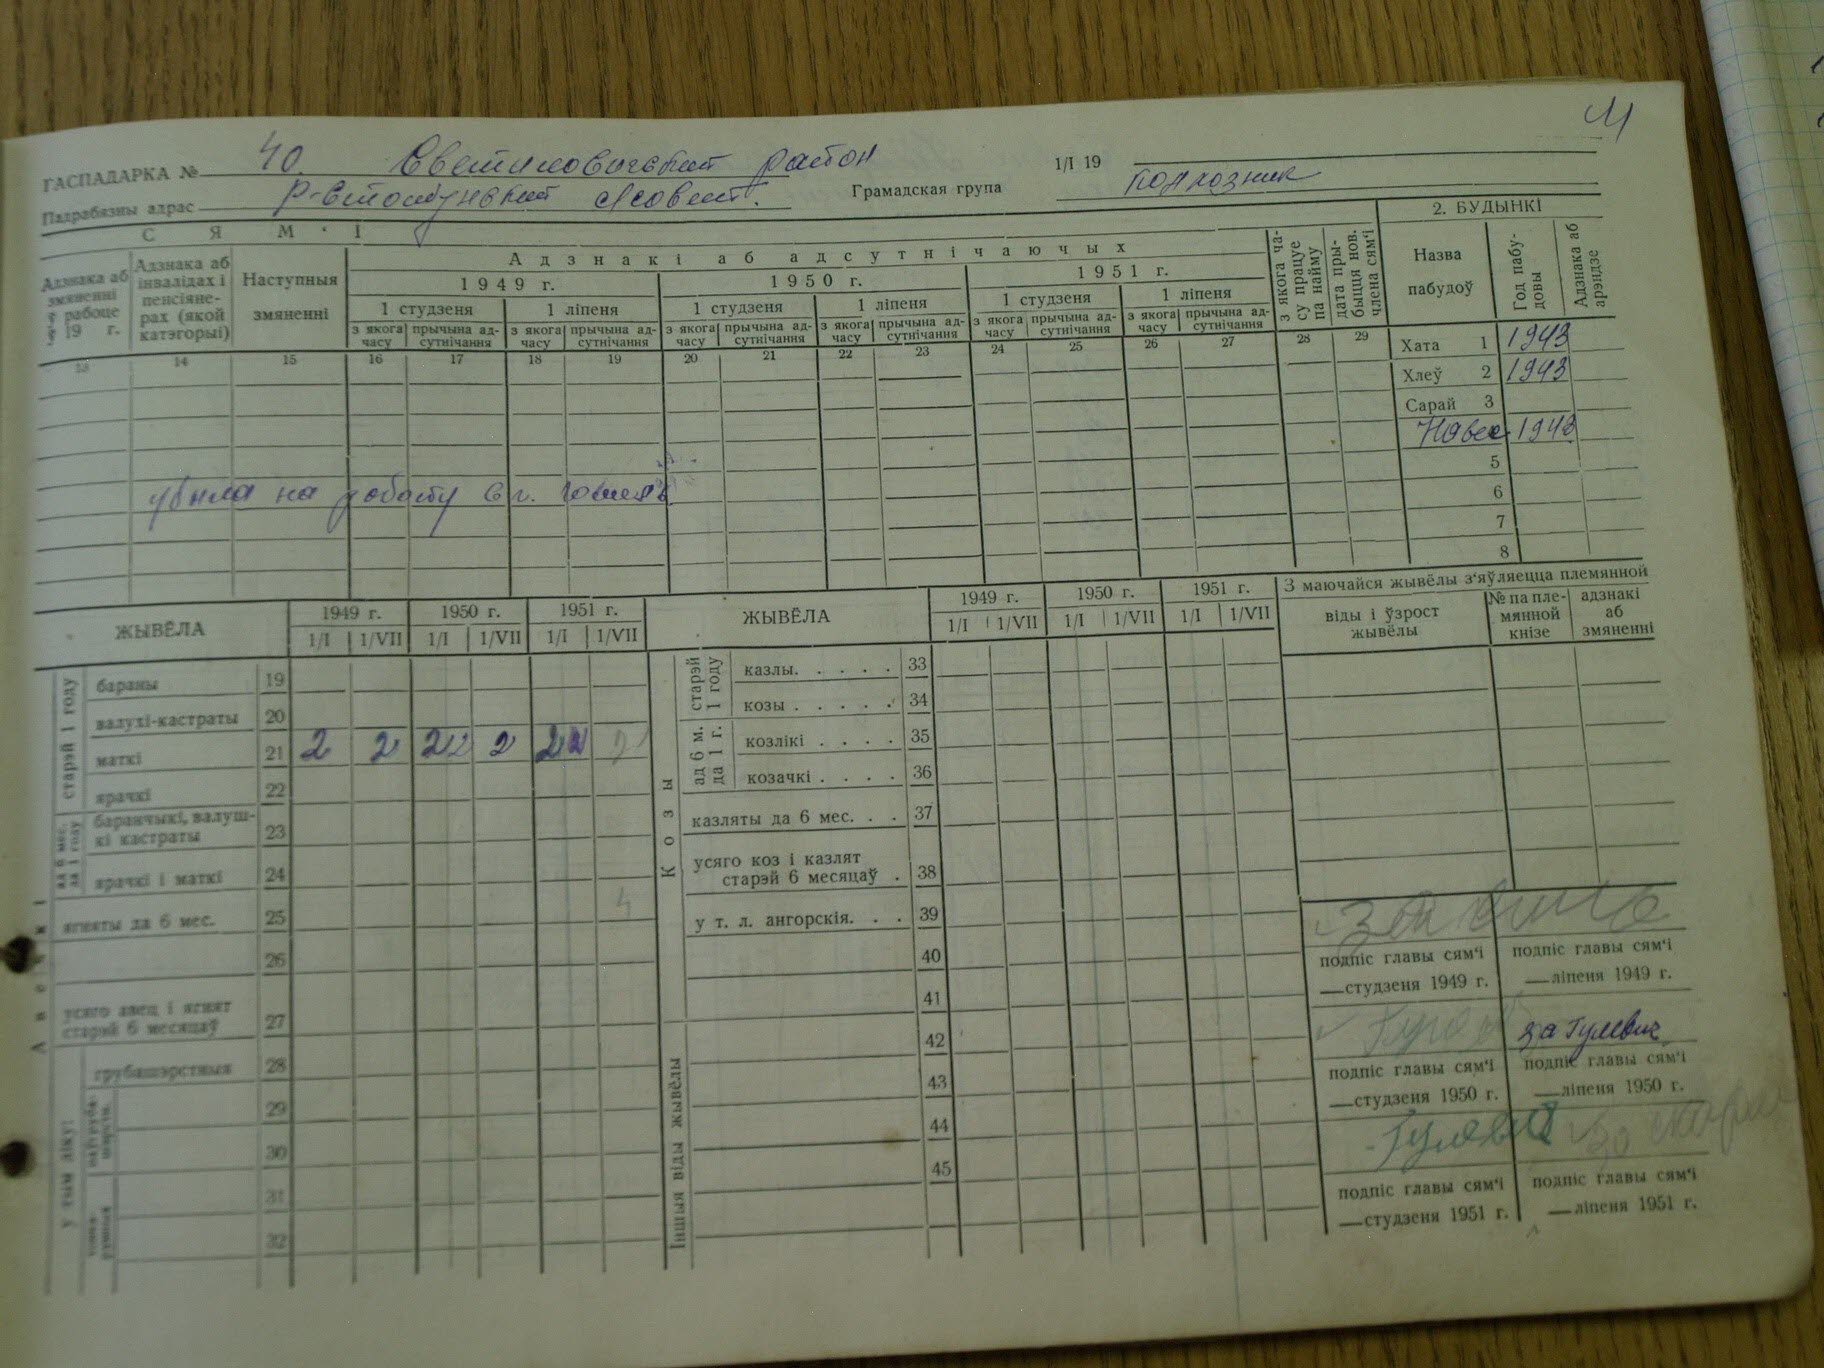 ГАСПАДАРКА № 40. Светиловичский район
1/I 19
Падрабязны адрас с/совет.
Грамадская група колхозник
С Я М ' І
2. БУДЫНКІ
Адзнака аб змяненні ў рабоце ў 19 г.
Адзнака аб інвалідах і пенсіяне- рах (якой катэгорыі)
Наступныя змяненні
Адзнакі аб адсутнічаючых
1949 г. 1950 г. 1951 г.
1 студзеня 1 ліпеня 1 студзеня 1 ліпеня 1 студзеня 1 ліпеня
з якога часу прычына ад- сутнічання з якога часу прычына ад- сутнічання з якога часу прычына ад- сутнічання з якога часу прычына ад- сутнічання з якога часу прычына ад- сутнічання з якога часу прычына ад- сутнічання
з якога ча- су працуе па найму
дата пры- быцця нов. члена сям'і
Назва пабудоў
Год пабу- довы
Адзнака аб арэндзе
13 14 15 16 17 18 19 20 21 22 23 24 25 26 27 28 29
Хата 1 1943
Хлеў 2 1943
Сарай 3
Навес 1943
5
6
7
8
убыла на работу в г. Гомель
ЖЫВЁЛА
1949 г. 1950 г. 1951 г.
1/I 1/VII 1/I 1/VII 1/I 1/VII
ЖЫВЁЛА
1949 г. 1950 г. 1951 г.
1/I 1/VII 1/I 1/VII 1/I 1/VII
З маючайся жывёлы з'яўляецца племянной
віды і ўзрост жывёлы
№ па пле- мянной кнізе
адзнакі аб змяненні
старэй 1 году
бараны 19
валухі-кастраты 20
маткі 21 2 2 2 2 2 2
ярачкі 22
ад 6 мес. да 1 году
баранчыкі, валуш- кі кастраты 23
ярачкі і маткі 24
ягняты да 6 мес. 25
26
усяго авец і ягнят старэй 6 месяцаў 27
у тым ліку:
грубашэрстныя 28
29
30
31
32
Козы
старэй 1 году
казлы 33
козы 34
ад 6 м. да 1 г.
козлікі 35
козачкі 36
казляты да 6 мес. 37
усяго коз і казлят старэй 6 месяцаў 38
у т. л. ангорскія 39
40
41
Іншыя віды жывёлы
42
43
44
45
подпіс главы сям'і —студзеня 1949 г.
подпіс главы сям'і —ліпеня 1949 г.
за Гулевич
подпіс главы сям'і —студзеня 1950 г.
подпіс главы сям'і —ліпеня 1950 г.
Гулевич
подпіс главы сям'і —студзеня 1951 г.
подпіс главы сям'і —ліпеня 1951 г.